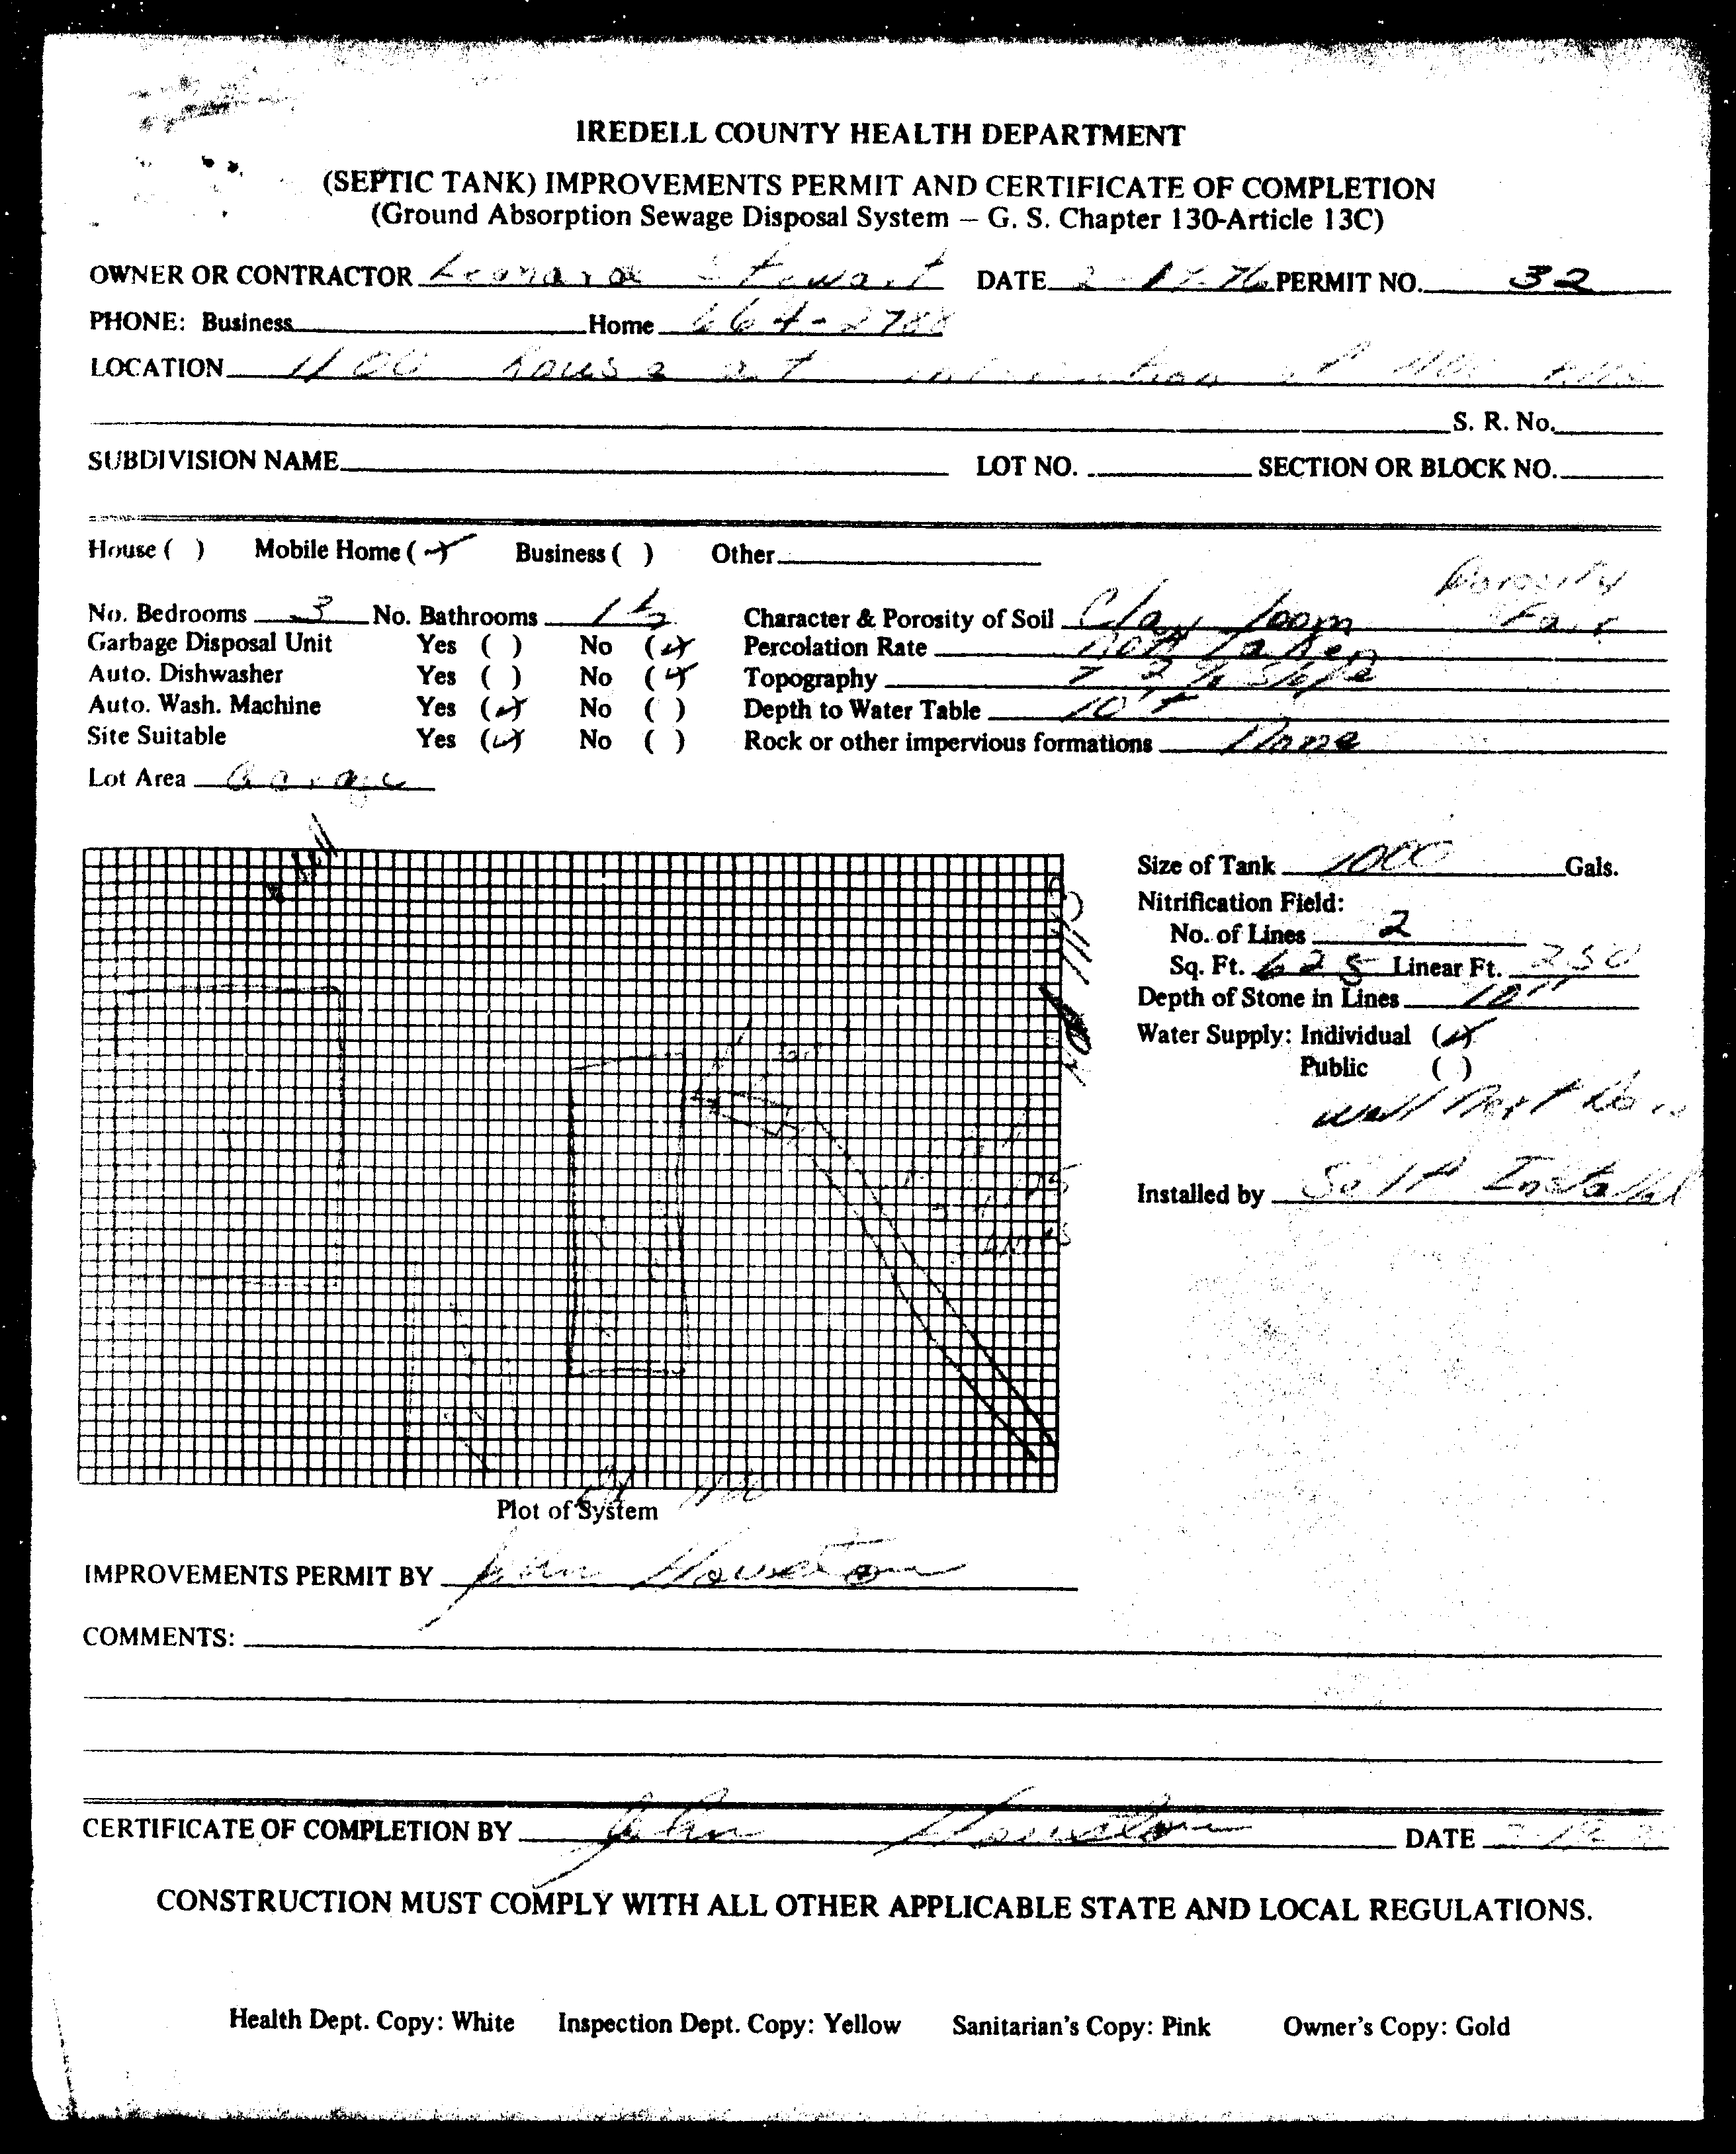 IREDELL COUNTY HEALTH DEPARTMENT
(SEPTIC TANK) IMPROVEMENTS PERMIT AND CERTIFICATE OF COMPLETION
(Ground Absorption Sewage Disposal System – G. S. Chapter 130-Article 13C)
OWNER OR CONTRACTOR Leonard Stewart DATE 2-17-76 PERMIT NO. 32
PHONE: Business Home 664-2788
LOCATION house at
S. R. No.
SUBDIVISION NAME LOT NO. SECTION OR BLOCK NO.
House ( ) Mobile Home (x) Business ( ) Other
Porosity
No. Bedrooms 3 No. Bathrooms 1½ Character & Porosity of Soil Clay loom Fair
Garbage Disposal Unit Yes ( ) No (x) Percolation Rate not taken
Auto. Dishwasher Yes ( ) No (x) Topography % Slope
Auto. Wash. Machine Yes (x) No ( ) Depth to Water Table 10'+
Site Suitable Yes (x) No ( ) Rock or other impervious formations None
Lot Area
Well
Size of Tank 1000 Gals.
Nitrification Field:
No. of Lines 2
Sq. Ft. 625 Linear Ft. 250
Depth of Stone in Lines 10"
Water Supply: Individual (x)
Public ( )
well
Installed by Self Install
Plot of System
IMPROVEMENTS PERMIT BY John Houston
COMMENTS:
CERTIFICATE OF COMPLETION BY John Houston DATE
CONSTRUCTION MUST COMPLY WITH ALL OTHER APPLICABLE STATE AND LOCAL REGULATIONS.
Health Dept. Copy: White Inspection Dept. Copy: Yellow Sanitarian's Copy: Pink Owner's Copy: Gold